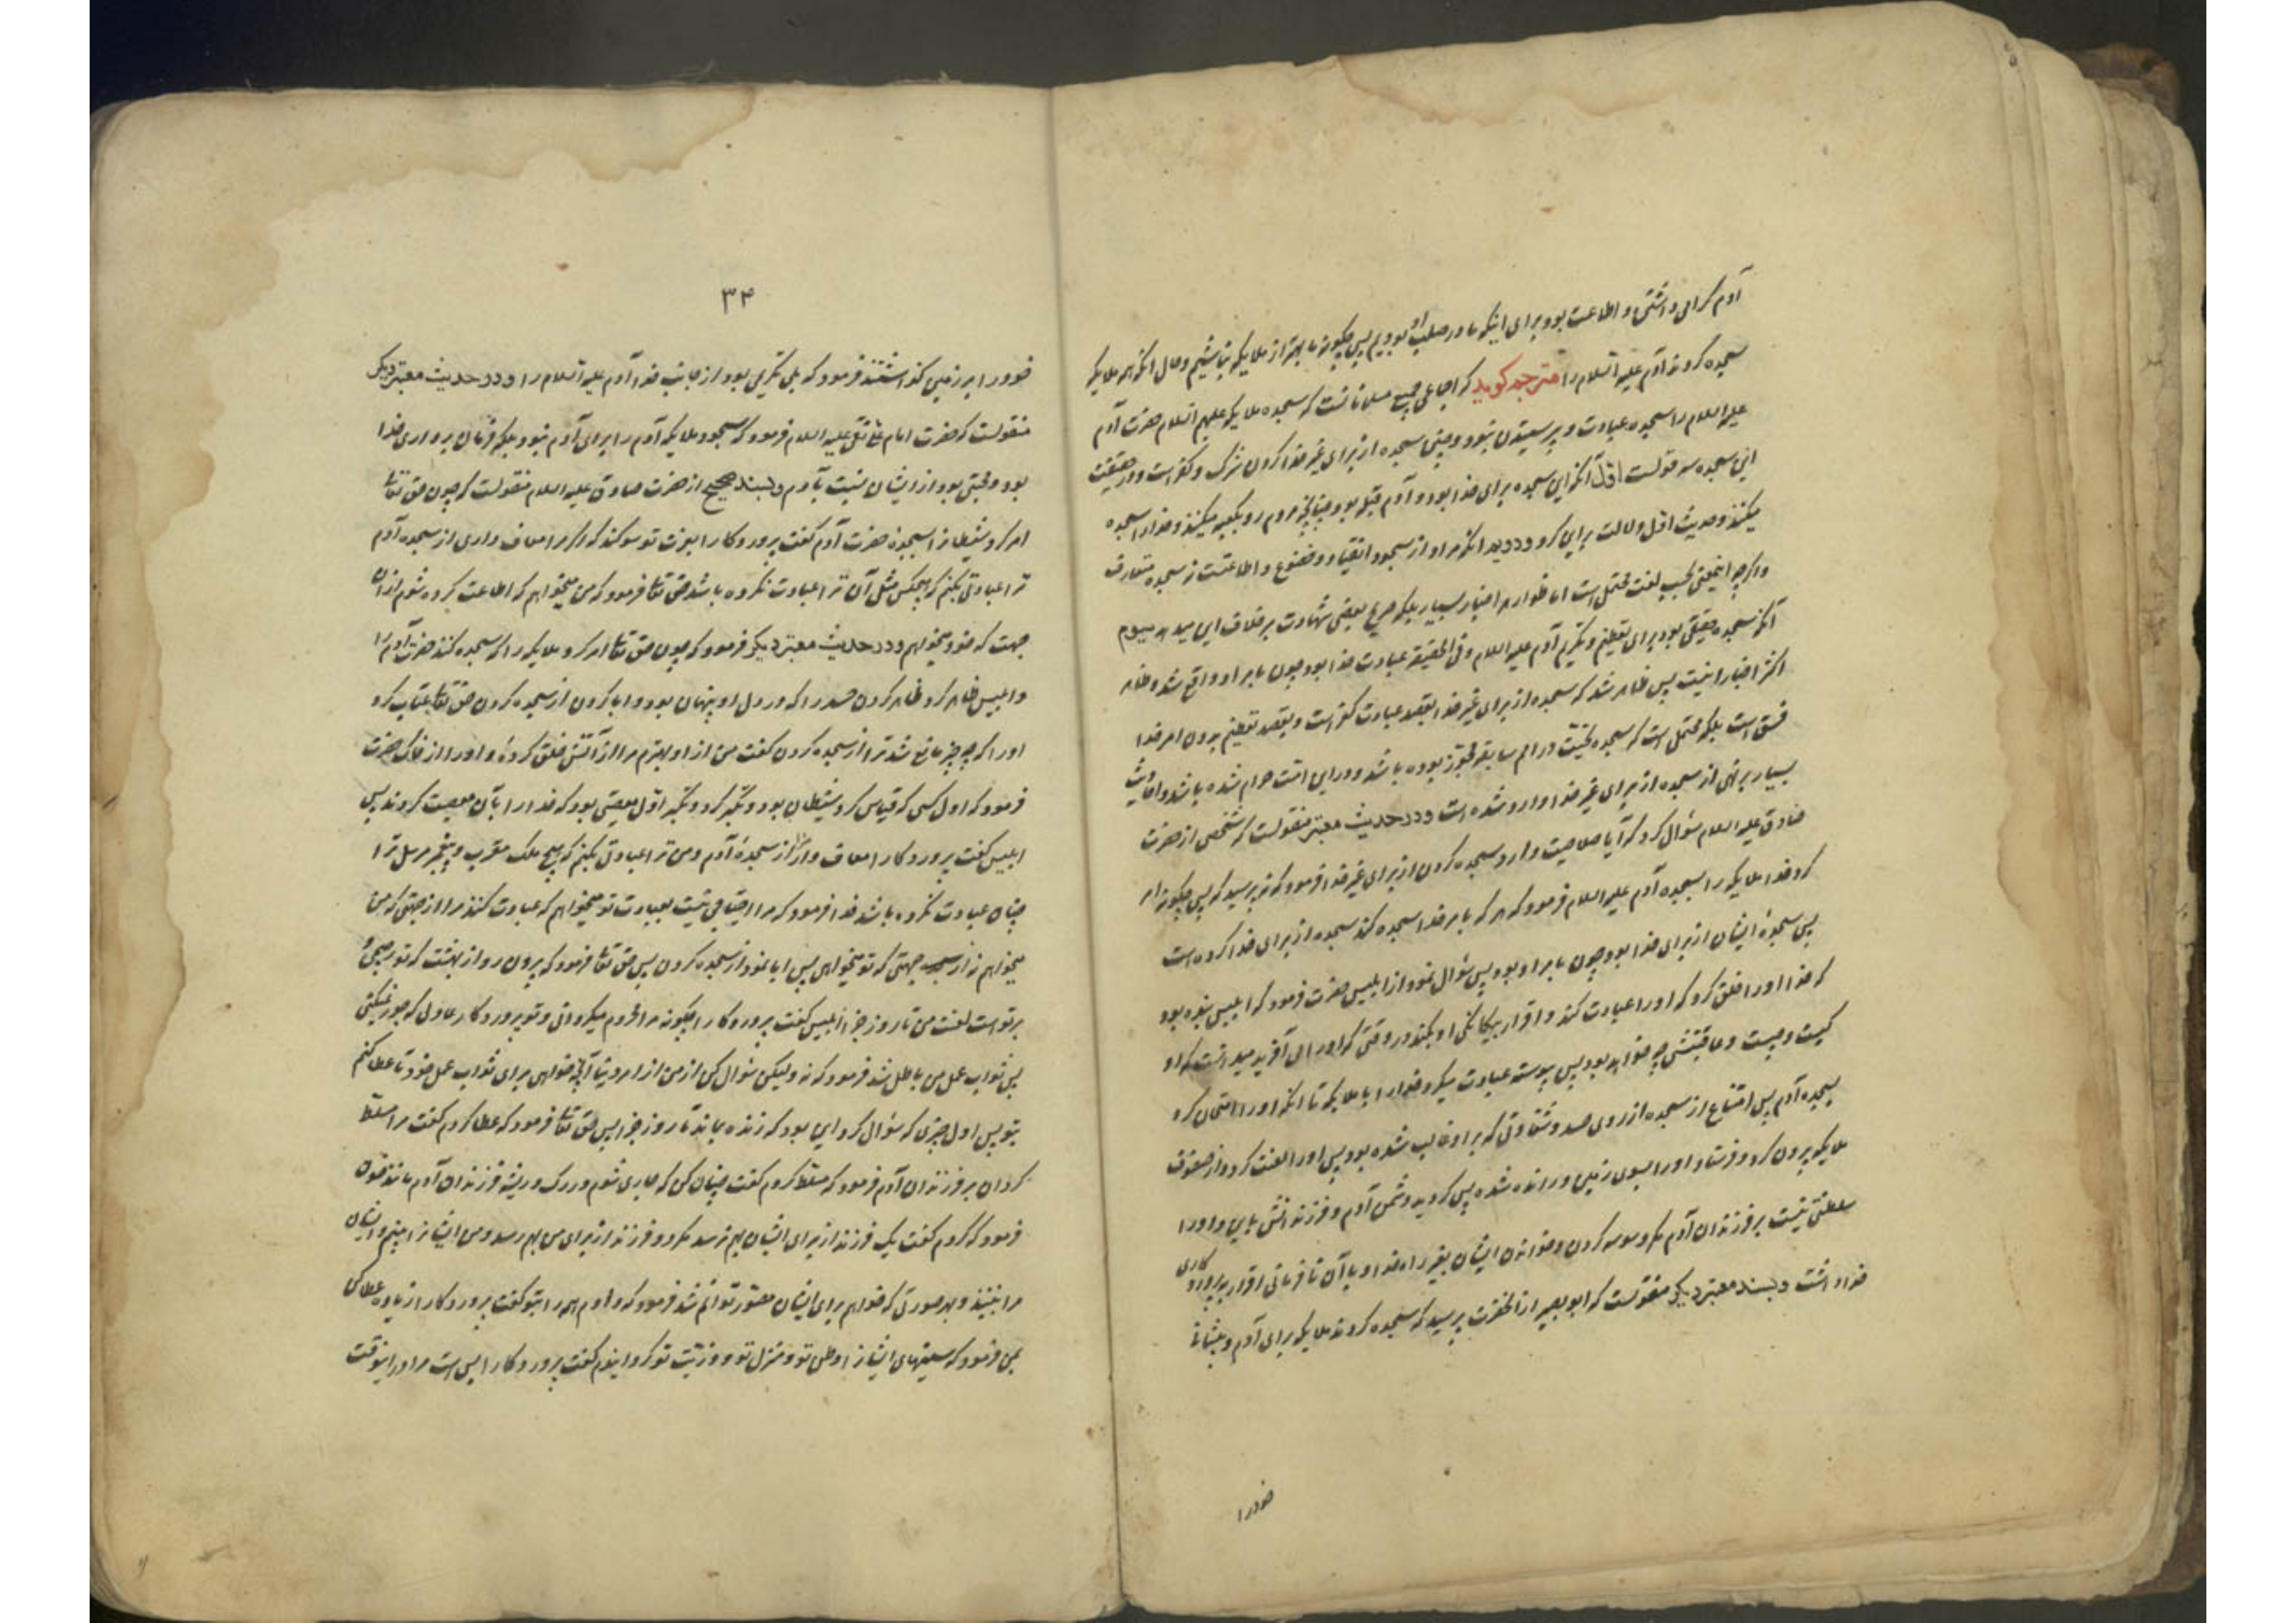 آدم گرامی داشتن و اطاعت بود برای اینکه ما در صلب او بودیم پس چگونه ما بهتر از ملایکه نباشیم و حال آنکه همه ملایکه
سجده کردند آدم علیه السلام را مترجم گوید که اجماعی جمیع مسلمانانست که سجده ملایکه علیهم السلام حضرت آدم
علیه السلام را سجده عبادت و پرستیدن نبود و چنین سجده از برای غیر خدا کردن شرک و کفر است و در حقیقت
این سجده سه قولست اول آنکه این سجده برای خدا بود و آدم قبله بود چنانچه مردم رو بکعبه میکنند و خدا را سجده
میکنند و حدیث اول دلالت براین کرد و دویم آنکه مراد از سجود انقیاد و خضوع و اطاعتست نه سجده متعارف
و اگرچه اینمعنی بحسب لغت محتمل است اما ظواهر اخبار بسیار بلکه صریح بعضی شهادت برخلاف این میدهد سیوم
آنکه سجده حقیقی بود برای تعظیم و تکریم آدم علیه السلام و فی الحقیقه عبادت خدا بود چون بامر او واقع شد و ظاهر
اکثر اخبار اینست پس ظاهر شد که سجده از برای غیر خدا بقصد عبادت کفر است و بقصد تعظیم بدون امر خدا
فسق است بلکه محتمل است که سجده تحیّت در امم سابقه مجوّز بوده باشد و در این امّت حرام شده باشد و احادیث
بسیار بر نهی از سجده از برای غیر خدا وارد شده است و در حدیث معتبر منقولست که شخصی از حضرت
صادق علیه السلام سؤال کرد که آیا صلاحیت دارد سجده کردن از برای غیر خدا فرمود که نه پرسید که پس چگونه امر
کرد خدا ملایکه را بسجده آدم علیه السلام فرمود که هر که بامر خدا سجده کند سجده از برای خدا کرده است
پس سجدهٔ ایشان از برای خدا بود چون بامر او بود پس سؤال نمود از ابلیس حضرت فرمود که ابلیس بنده بود
که خدا او را خلق کرد که او را عبادت کند و اقرار بیگانگی او بکند و در وقتی که او را می آفرید میدانست که او
کیست و چیست و عاقبتش چه خواهد بود پس پیوسته عبادت میکرد خدا را با ملایکه تا آنکه او را امتحان کرد
بسجده آدم پس امتناع از سجده از روی حسد و شقاوتی که بر او غالب شده بود پس او را لعنت کرد و از صفوف
ملایکه بیرون کرد و فرستاد او را بسوی زمین و رانده شده پس گردید دشمن آدم و فرزندانش باین و او را
سلطنتی نیست بر فرزندان آدم مگر وسوسه کردن و خواندن ایشان بغیر راه خدا و با آن نافرمانی اقرار بپروردگاری
خدا داشت و بسند معتبر دیگر منقولست که ابو بصیر از آنحضرت پرسید که سجده کردند ملایکه برای آدم و پیشانی
خود را
۳۴
خود را بر زمین گذاشتند فرمود که بلی تکریمی بود از جانب خدا آدم علیه السلام را و در حدیث معتبر دیگر
منقولست که حضرت امام علی نقی علیه السلام فرمود که سجود ملایکه آدم را برای آدم نبود بلکه فرمان برداری خدا
بود و محبتی بود از ایشان نسبت بآدم و بسند صحیح از حضرت صادق علیه السلام منقولست که چون حق تعالی
امر کرد شیطان را بسجدهٔ حضرت آدم گفت پروردگارا بعزت تو سوگند که اگر مرا معاف داری از سجده آدم
ترا عبادتی بکنم که هیچکس مثل آن ترا عبادت نکرده باشد حق تعالی فرمود که من میخواهم که اطاعت کرده شوم از آن
جهت که خود میخواهم و در حدیث معتبر دیگر فرمود که چون حق تعالی امر کرد ملایکه را که سجده کنند حضرت آدم را
و ابلیس ظاهر کرد ظاهر کردن حسد را که در دل او پنهان بود و ابا کردن از سجده کردن حق تعالی عتاب کرد
او را که چه چیز مانع شد ترا از سجده کردن گفت من از او بهترم مرا از آتش خلق کردهٔ و او را از خاک حضرت
فرمود که اول کسی که قیاس کرد شیطان بود و تکبر کرد و تکبر اوّل معصیتی بود که خدا را بآن معصیت کردند پس
ابلیس گفت پروردگارا معاف دار مرا از سجدهٔ آدم و من ترا عبادتی بکنم که هیچ ملک مقرب و پیغمبر مرسل ترا
چنان عبادت نکرده باشد خدا فرمود که مرا احتیاجی نیست بعبادت تو میخواهم که عبادت کنند مرا از جهتی که من
میخواهم نه از جهتی که تو میخواهی پس ابا نمود از سجده کردن پس حق تعالی فرمود که بیرون رو از بهشت که تو رجیمی و
بر تو است لعنت من تا روز جزا ابلیس گفت پروردگارا چگونه مرا محروم میگردانی و تو پروردگار عادل که جور نمیکنی
پس ثواب عمل من باطل شد فرمود که نه ولیکن سؤال کن از من از امر دنیا آنچه خواهی برای ثواب عمل خود تا عطا کنم
بتو پس اول چیزی که سؤال کرد این بود که زنده بماند تا روز جزا پس حق تعالی فرمود که عطا کردم گفت مرا مسلّط
گردان بر فرزندان آدم فرمود که مسلّط کردم گفت چنان کن که جاری شوم در رگ و ریشهٔ فرزندان آدم مانند خون
فرمود که کردم گفت یک فرزند از برای ایشان بهم نرسد مگر دو فرزند از برای من بهم رسد و من ایشانرا ببینم و ایشان
مرا نبینند و بهر صورتی که خواهم برای ایشان مصوّر توانم شد فرمود که دادم همه را بتو گفت پروردگارا زیاده عطا کن
بمن فرمود که سینهای ایشانرا وطن تو و منزل تو و ذریّت تو گردانیدم گفت پروردگارا بس است مرا در اینوقت